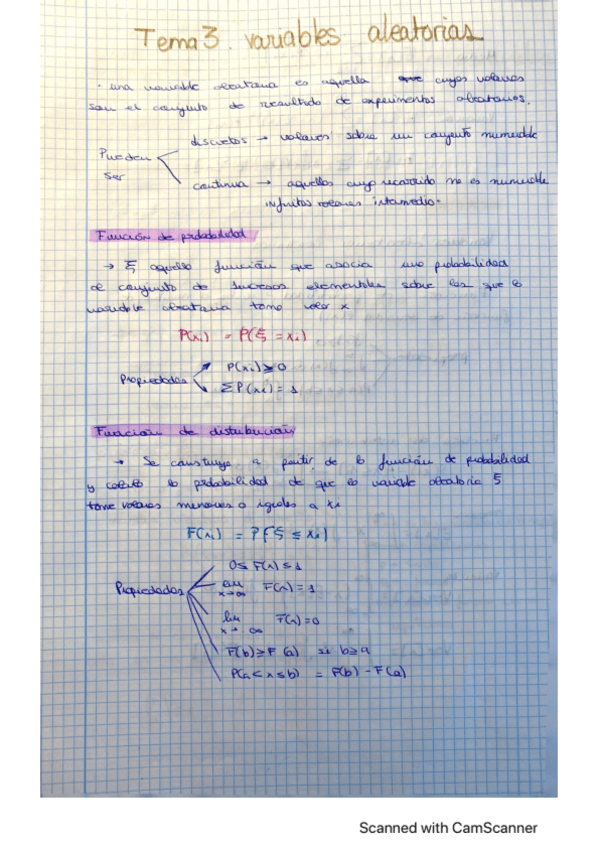 Tema 3. variables aleatorias
· una variable aleatoria es aquella cuyos valores
son el conjunto de resultado de experimentos aleatorios.
Pueden ser
discretos → valores sobre un conjunto numerable
continua → aquellos cuyo recorrido no es numerable
infinitos valores intermedio.
Función de probabilidad
→ ξ aquella función que asocia una probabilidad
al conjunto de sucesos elementales sobre los que la
variable aleatoria toma valor x
P(xi) = P(ξ = xi)
Propiedades
P(xi) ≥ 0
ΣP(xi) = 1
Función de distribución
→ Se construye a partir de la función de probabilidad
y calcula la probabilidad de que la variable aleatoria ξ
tome valores menores o iguales a xi
F(xi) = P{ξ ≤ xi}
Propiedades
0 ≤ F(x) ≤ 1
lim x→∞ F(x) = 1
lim x→ ∞ F(x) = 0
F(b) ≥ F(a) si b ≥ a
P(a < x ≤ b) = F(b) - F(a)
Scanned with CamScanner